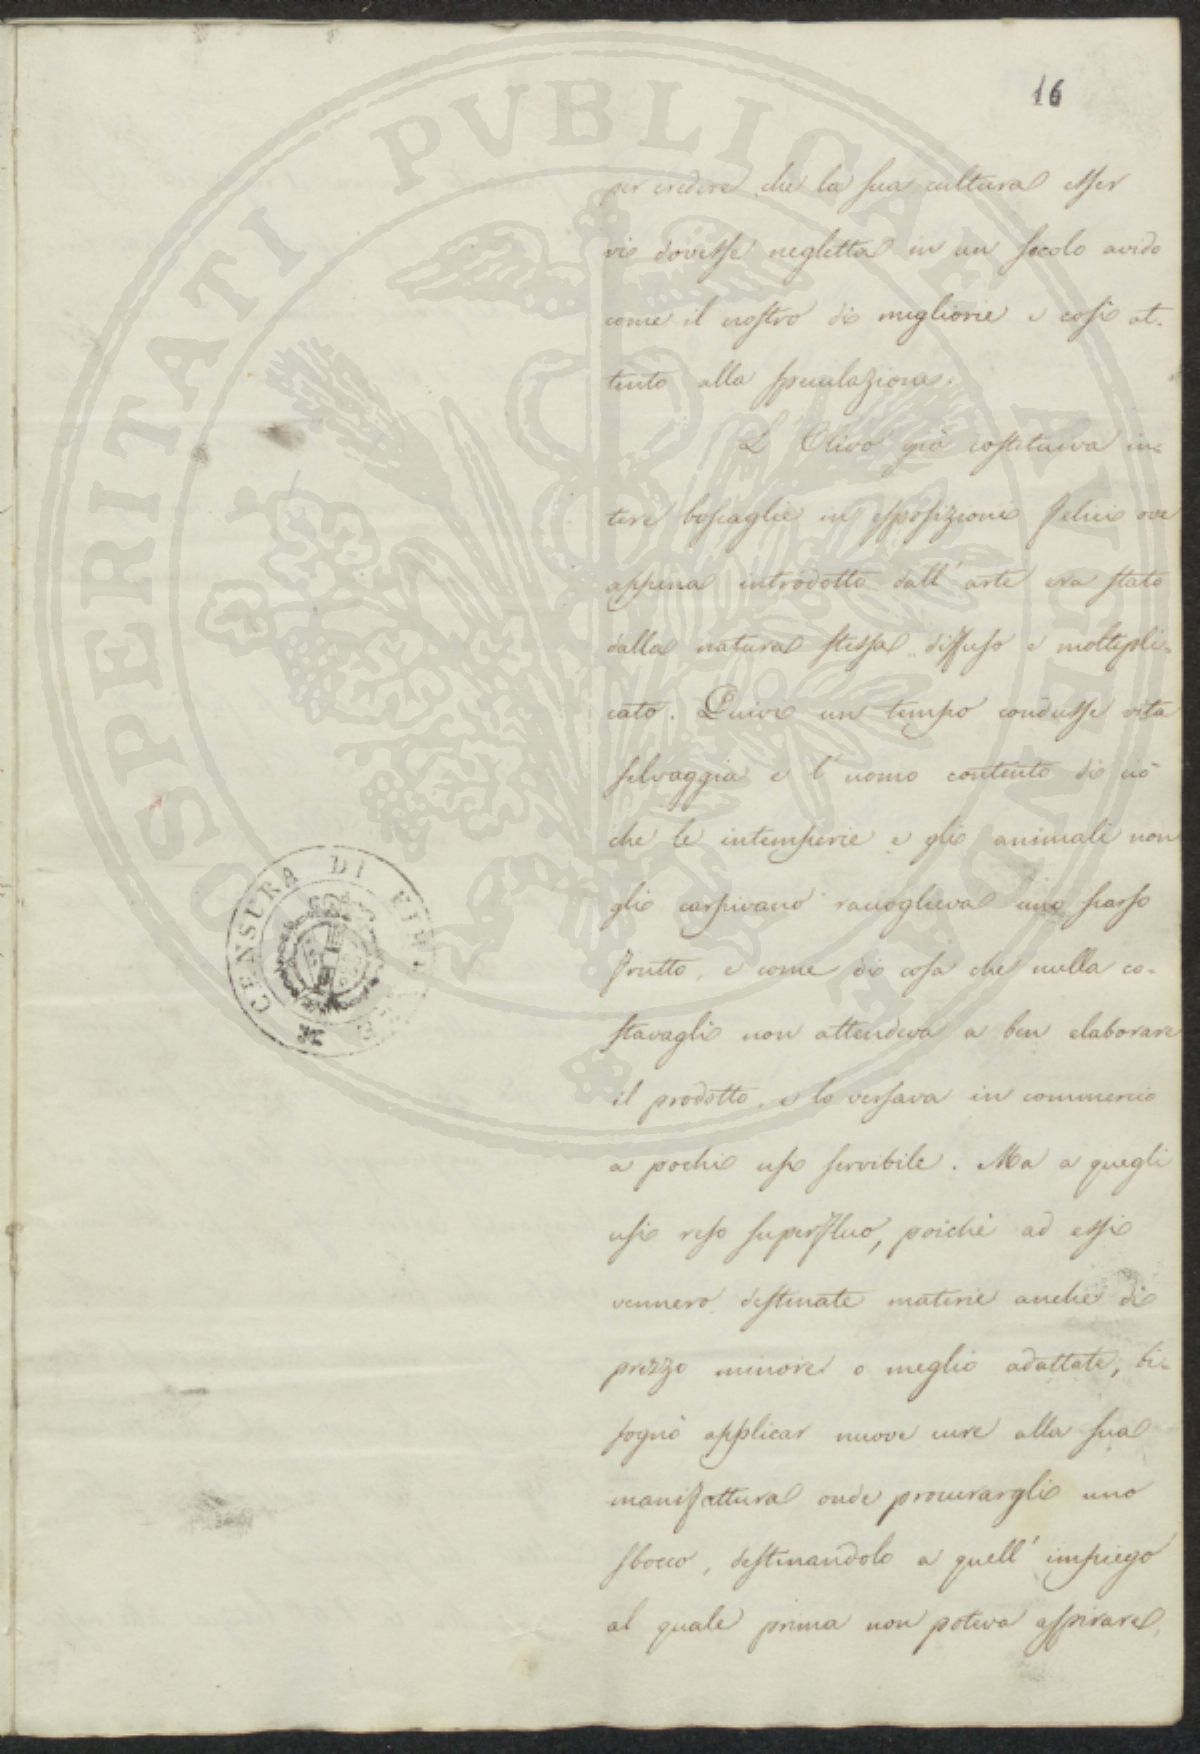 16
per credere che la sua cultura esser
vi dovesse negletta in un secolo avido
come il nostro di migliorie e così at-
tento alla speculazione.
L'Olivo già costituiva in-
tere boscaglie in esposizioni felici ove
appena introdotto dall'arte era stato
dalla natura stessa diffuso e moltipli-
cato. Quivi un tempo condusse vita
selvaggia e l'uomo contento di ciò
che le intemperie e gli animali non
gli carpivano raccoglieva uno scarso
frutto, e come di cosa che nulla co-
stavagli non attendeva a ben elaborare
il prodotto, e lo versava in commercio
a pochi usi servibile. Ma a quegli
usi reso superfluo, poichè ad essi
vennero destinate materie anche di
prezzo minore o meglio adattate, bi-
sognò applicar nuove cure alla sua
manifattura onde procurargli uno
sbocco, destinandolo a quell'impiego
al quale prima non poteva aspirare,
CENSURA DI
PROSPERITATI PVBLICAE AVGENDAE